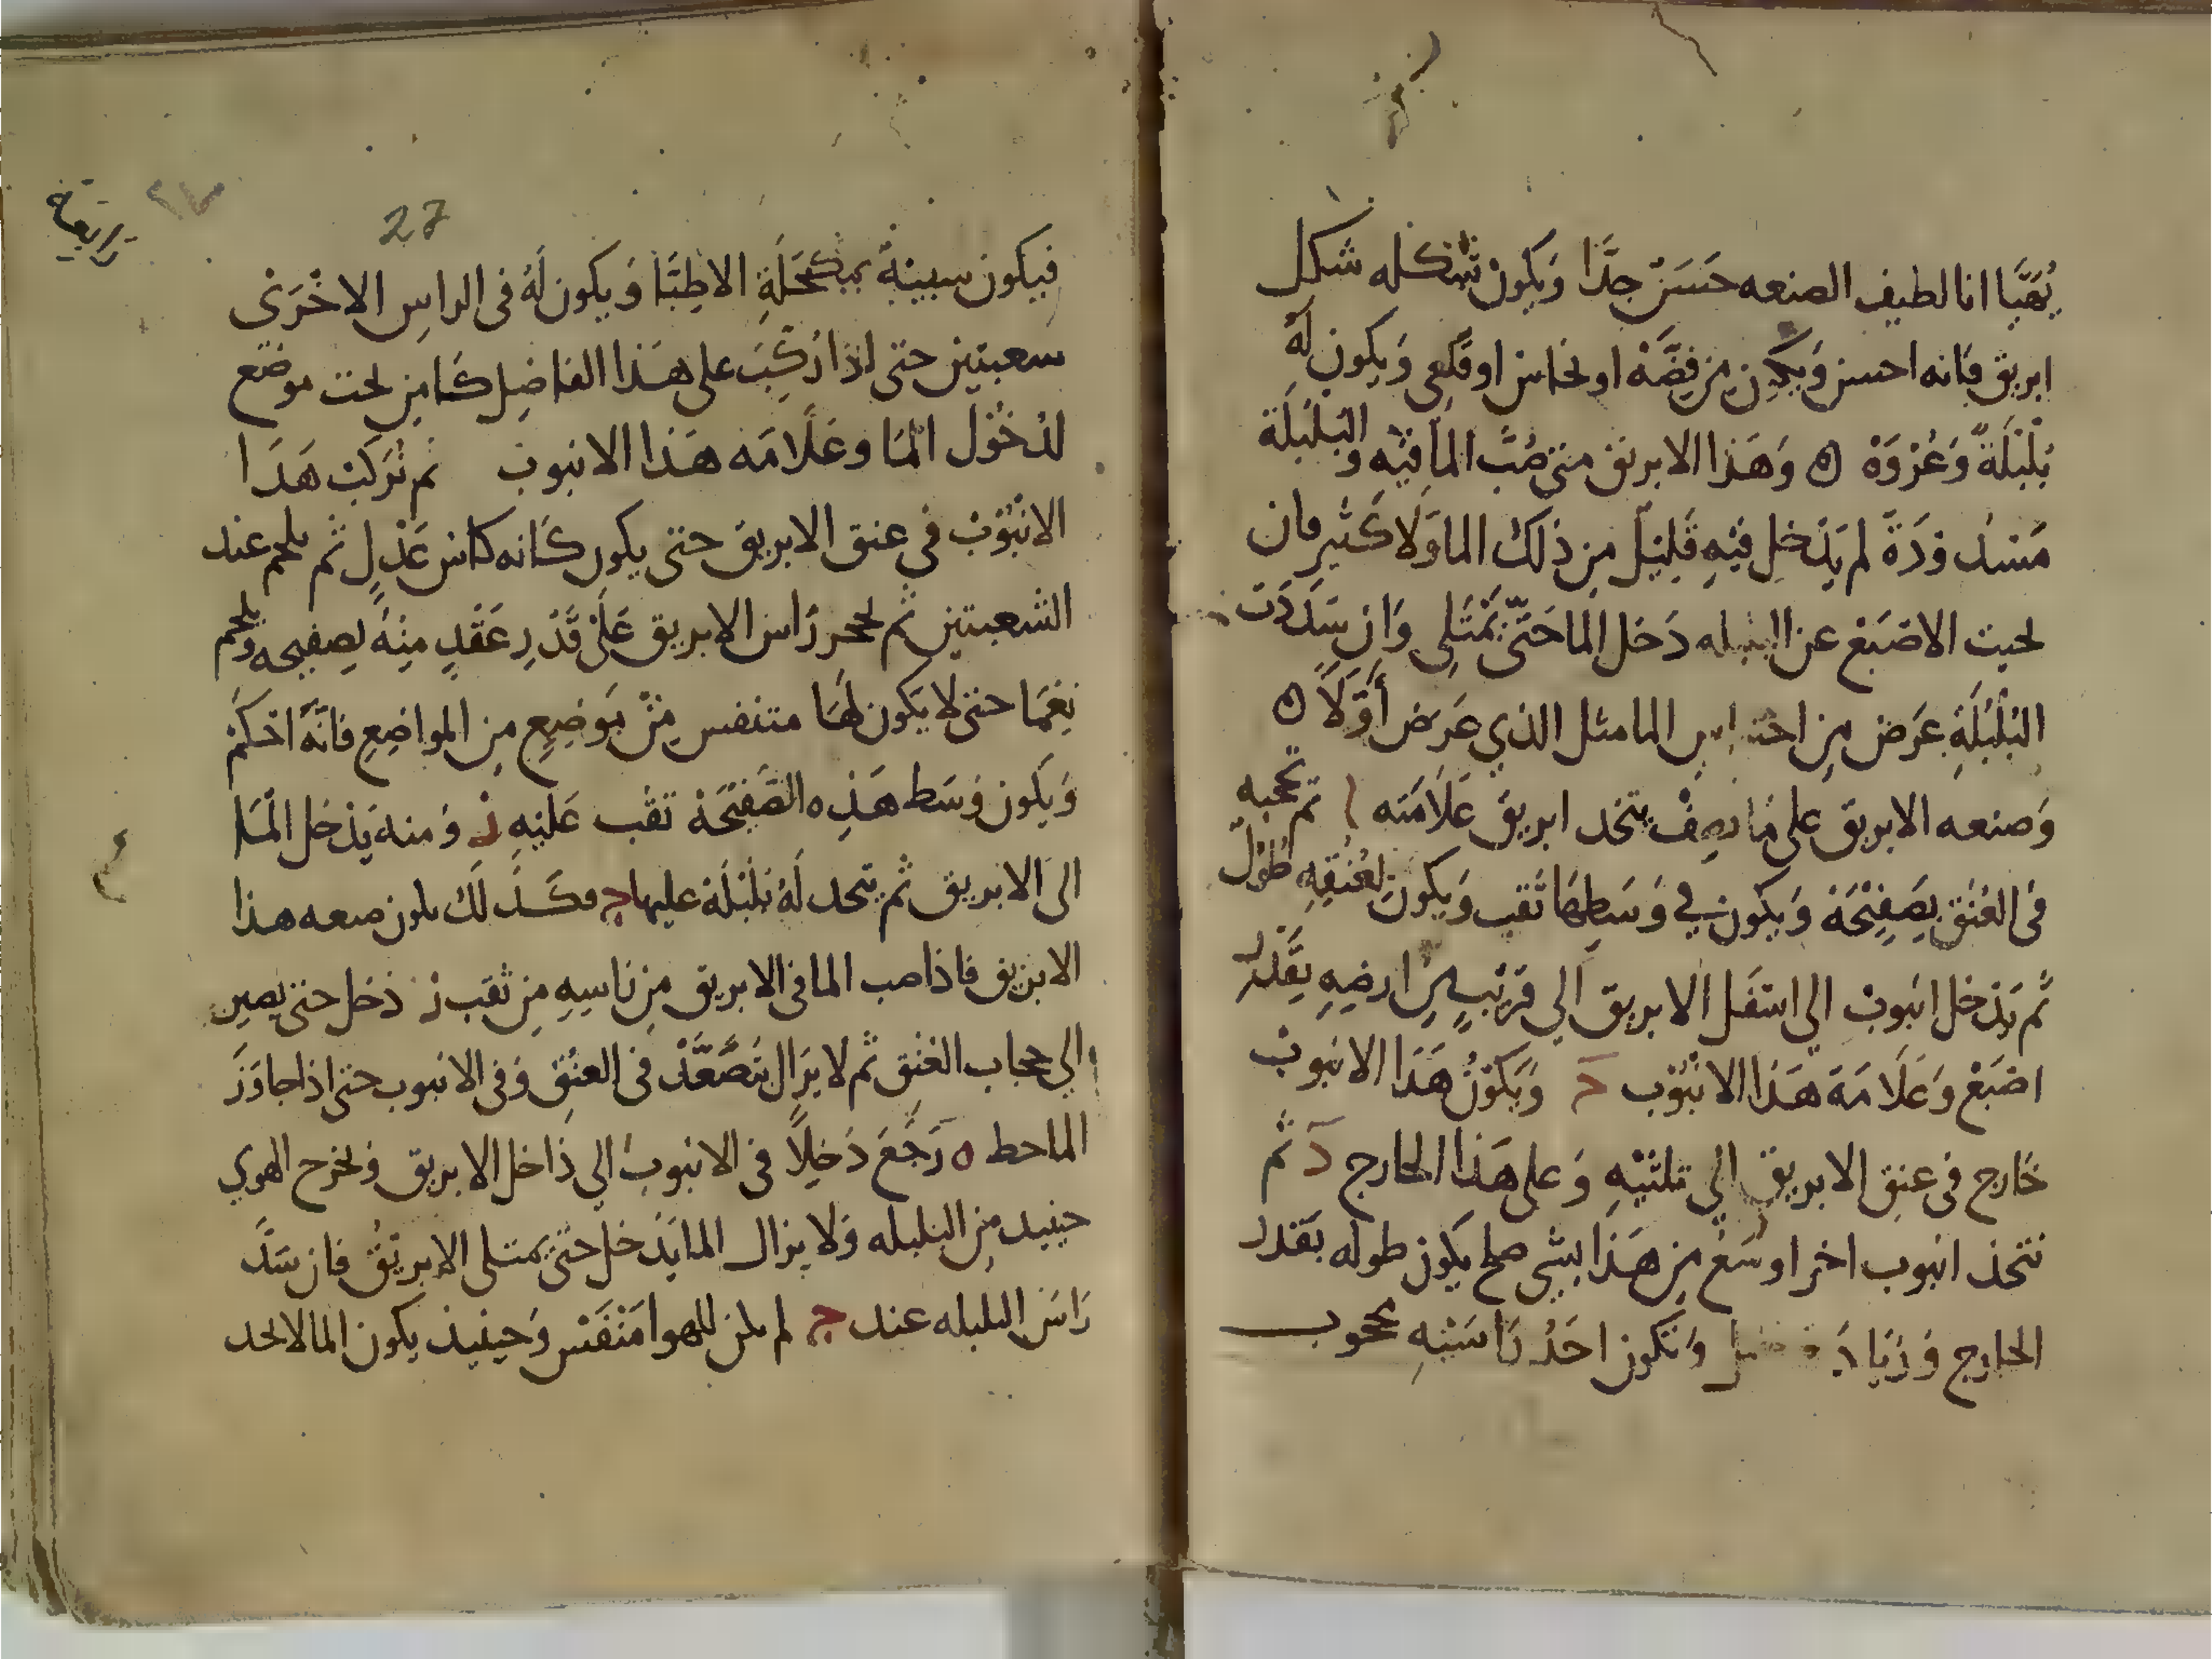 يُهَيَّا انا لطيف الصنعه حَسَنَ جدَّا وَيَكونْ شكله شكل
ابريق فانه احسن وَيكون مِن فِضَّهْ او نحاس او قلعى وَيكون لهُ
بَلْبَلَةً وَعُرْوَهْ ه وَهَذا الابريق متى صُبَّ المَا فيْه وَالبَلْبَلَة
مَسْدُودَةً لم يَدْخل فيْهِ قَليْل مِن ذلك الما وَلا كَثير فان
نحيت الاصْبَعْ عن البلبله دَخل الما حَتّى يَمْتَلِى وَان سَدَدَت
البَلْبَلَةِ عَرَضْ مِن احتباس الما مثل الذي عَرَض أوَّلاً ه
وَصنعه الابريق على ما نصِفْ يتخد ابريق عَلامَته ا ثم تحجبه
فى العُنَق بِصَفِيْحَهْ وَيكون في وَسَطِهَا ثَقب وَيكون لعُنُقِهِ طُوْل
ثم يَدْخل انبوبْ الي اسْفَل الابريق الي قرْبٍ مِن ارضِهِ بِقَدْر
اصْبَعْ وَعَلَامَة هَذا الانْبُوْب د وَيَكوْنُ هَذا الانبوبْ
خَارج فى عنق الابريق الي ثلثيْهِ وَعلى هَذا الخارج د ثم
نتخذ انبوب اخر اوسَعْ مِن هَذا بشي صلح يَكون طوله بقدر
الخارج وَزَيادَ وَتَكون احَدُ رَاسَيْهِ محجوب
27
٢٧
فيكون سبيْهةٌ بمكحَلَةِ الاطِبَّا وَيكون لَهُ فى الراسِ الاخْرَىْ
سعبتين حتى اذا رُكِّبَ على هَذا الفاضِل كَا مِن تحت موضع
لدُخُوْل المَا وعَلَامَه هَذا الانبوب ثم تُرَكبْ هَذَا
الانْبُوْبْ في عنق الابريق حتى يكون كَانه كاس عَدْلٍ ثم يلحم عند
الشعبتين ثم نحجر رَاس الابريق عَلى قَدْرِ عَقْدٍ مِنْهُ بِصفيحه وَيلحم
نِعْمَا حتى لا يَكون لهَا متنفس مِنْ مَوضِعٍ مِن المواضِعِ فانَّهُ احْكَمْ
وَيَكون وَسَط هَذِه الصَّفيْحَهْ ثقب عَليْهِ ز وَمنه يَدْخل المَا
الى الابريق ثم يتخد لَهُ بَلْبَلَة عليها ج وكَذلَك يكون صعه هذا
الابريق فاذا صب الما فى الابريق مِن رَاسِهِ مِن ثقب ز دَخل حتى يصير
الي حجاب العُنق ثم لا يَزال يَتَصَعَّدْ فى العنُق وَفى الانبوب حتى اذا جاوَزَ
الما حط ه رَجَعَ دَخِلًا فى الانبوب الي دَاخل الابريق وَيخرح الهوي
حينيد مِن البلبله وَلا يزال الما يَدْخل حتى يمتلى الابريْق فان سَدَّ
رَاسَ البلبله عند ج لم يكن للهوا مَنْفَس وَحينيذ يكون الما لا يحد